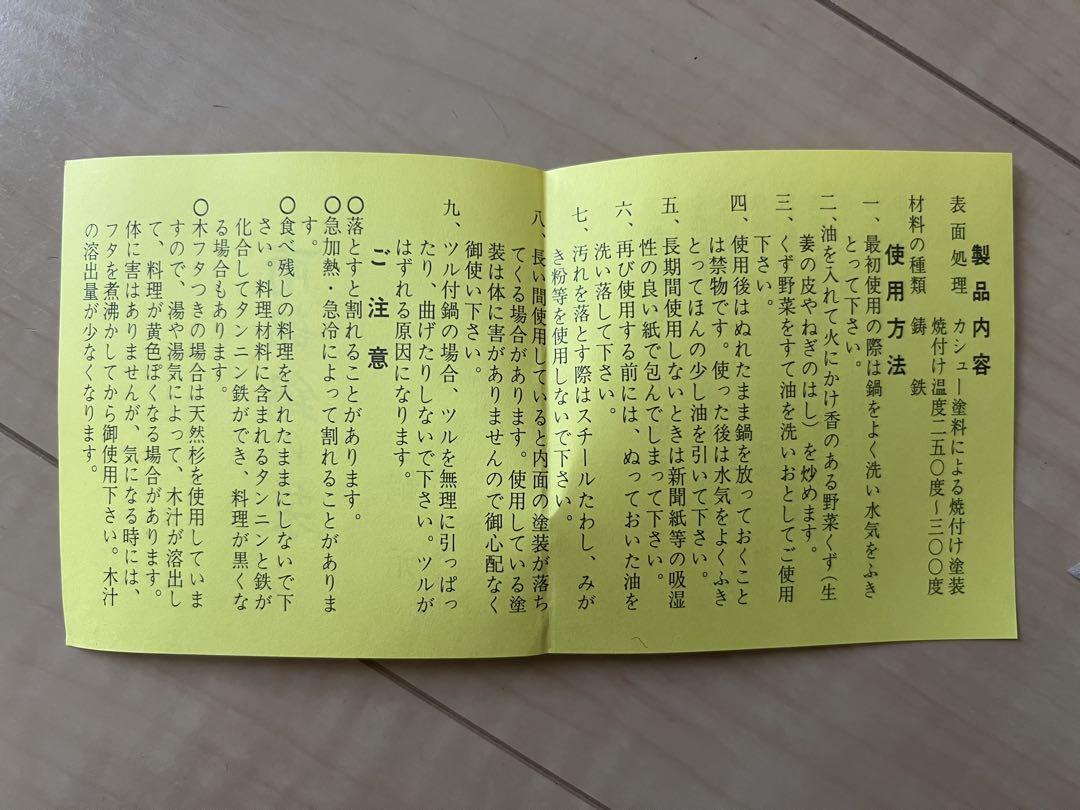 製品内容
表面処理　カシュー塗料による焼付け塗装
焼付け温度二五〇度～三〇〇度
材料の種類　鋳　鉄
使用方法
一、最初使用の際は鍋をよく洗い水気をふき
とって下さい。
二、油を入れて火にかけ香のある野菜くず（生
姜の皮やねぎのはし）を炒めます。
三、くず野菜をすて油を洗いおとしてご使用
下さい。
四、使用後はぬれたまま鍋を放っておくこと
は禁物です。使った後は水気をよくふき
とってほんの少し油を引いて下さい。
五、長期間使用しないときは新聞紙等の吸湿
性の良い紙で包んでしまって下さい。
六、再び使用する前には、ぬっておいた油を
洗い落して下さい。
七、汚れを落とす際はスチールたわし、みが
き粉等を使用しないで下さい。
八、長い間使用していると内面の塗装が落ち
てくる場合があります。使用している塗
装は体に害がありませんので御心配なく
御使い下さい。
九、ツル付鍋の場合、ツルを無理に引っぱっ
たり、曲げたりしないで下さい。ツルが
はずれる原因になります。
ご注意
〇落とすと割れることがあります。
〇急加熱・急冷によって割れることがありま
す。
〇食べ残しの料理を入れたままにしないで下
さい。料理材料に含まれるタンニンと鉄が
化合してタンニン鉄ができ、料理が黒くな
る場合もあります。
〇木フタつきの場合は天然杉を使用していま
すので、湯や湯気によって、木汁が溶出し
て、料理が黄色ぽくなる場合があります。
体に害はありませんが、気になる時には、
フタを煮沸かしてから御使用下さい。木汁
の溶出量が少なくなります。